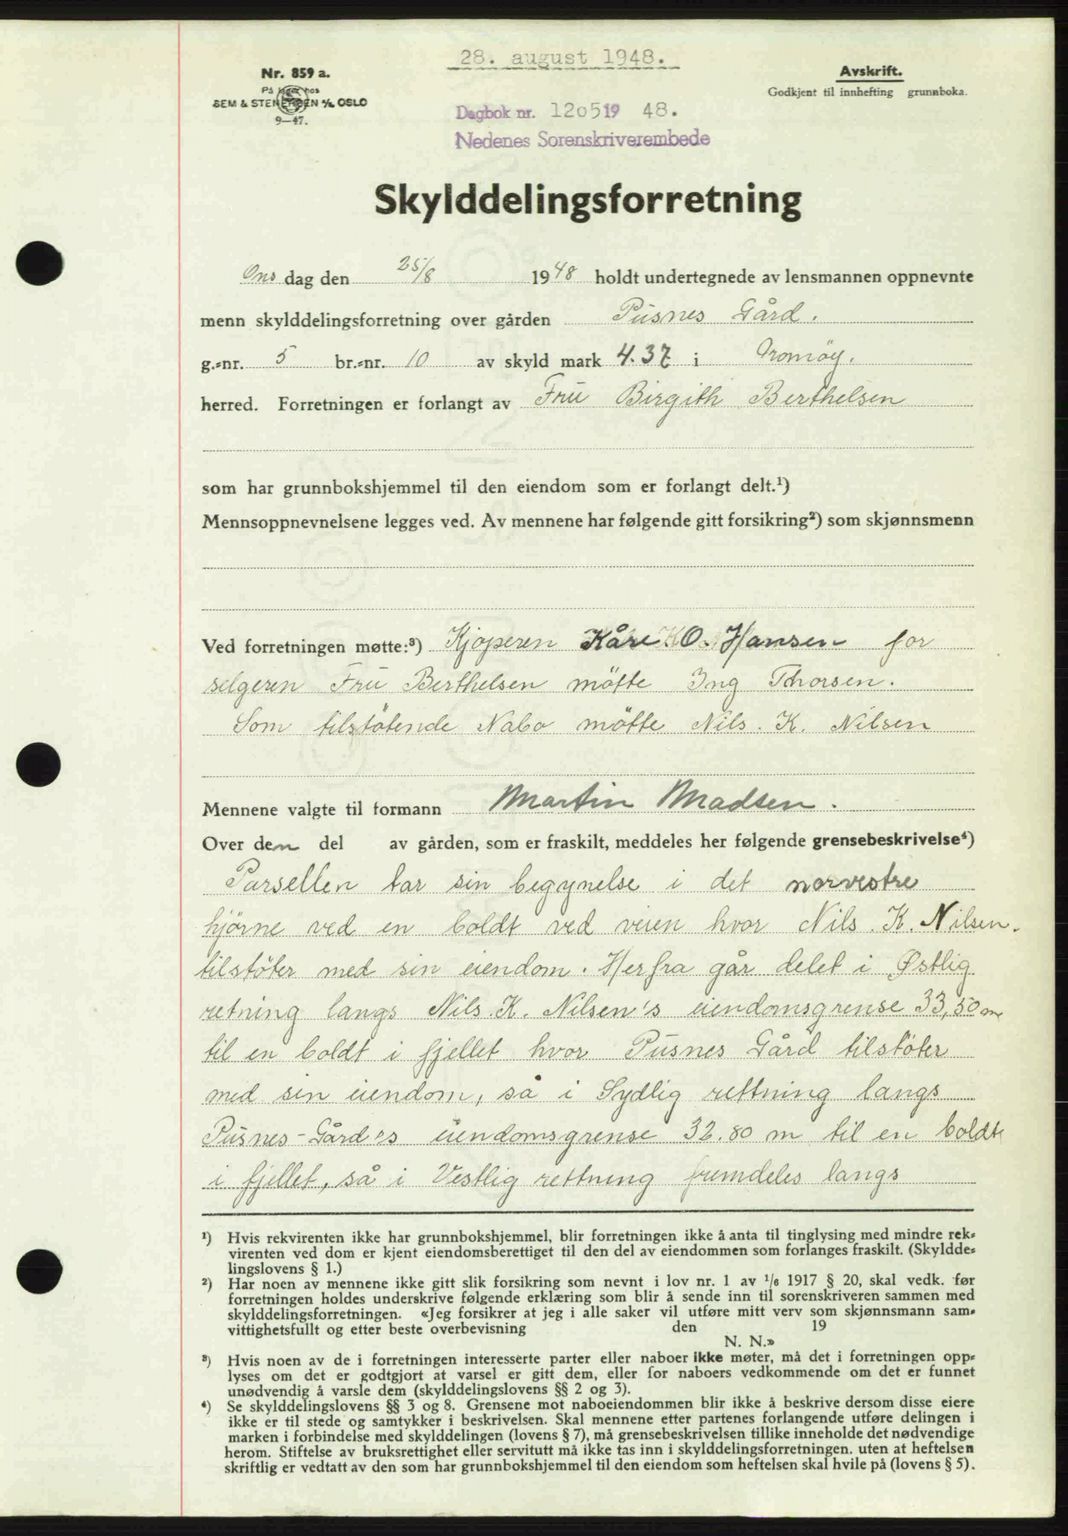 28. august 1948.
Nr. 859 a.
På lager hos
SEM & STENERSEN A/S OSLO
9—47.
Avskrift.
Godkjent til innhefting grunnboka.
Dagbok nr. 1205 19 48.
Nedenes Sorenskriverembede
Skylddelingsforretning
Ons dag den 25/8 1948 holdt undertegnede av lensmannen oppnevnte
menn skylddelingsforretning over gården Pusnes Gård.
g.-nr. 5 br.-nr. 10 av skyld mark 4.37 i Tromøy.
herred. Forretningen er forlangt av Fru Birgith Berthelsen
som har grunnbokshjemmel til den eiendom som er forlangt delt.¹)
Mennsoppnevnelsene legges ved. Av mennene har følgende gitt forsikring²) som skjønnsmenn
Ved forretningen møtte:³) Kjöperen Kåre O. Hansen for
selgeren Fru Berthelsen mötte Ing Thorsen.
Som tilstötende Nabo mötte Nils. K. Nilsen
Mennene valgte til formann Martin Madsen.
Over den del av gården, som er fraskilt, meddeles her følgende grensebeskrivelse⁴)
Parsellen tar sin begynelse i det norvestre
hjörne ved en boldt ved veien hvor Nils. K. Nilsen.
tilstöter med sin eiendom. Herfra går delet i Østlig
retning langs Nils. K. Nilsen's eiendomsgrense 33,50 m
til en boldt i fjellet hvor Pusnes Gård tilstöter
med sin eiendom, så i Sydlig rettning langs
Pusnes-Gård's eiendomsgrense 32.80 m til en boldt
i fjellet, så i Vestlig rettning fremdeles langs
¹) Hvis rekvirenten ikke har grunnbokshjemmel, blir forretningen ikke å anta til tinglysing med mindre rek-
virenten ved dom er kjent eiendomsberettiget til den del av eiendommen som forlanges fraskilt. (Skyldde-
lingslovens § 1.)
²) Har noen av mennene ikke gitt slik forsikring som nevnt i lov nr. 1 av 1/6 1917 § 20, skal vedk. før
forretningen holdes underskrive følgende erklæring som blir å sende inn til sorenskriveren sammen med
skylddelingsforretningen. «Jeg forsikrer at jeg i alle saker vil utføre mitt verv som skjønnsmann sam-
vittighetsfullt og etter beste overbevisning den 19
N. N.»
³) Hvis noen av de i forretningen interesserte parter eller naboer ikke møter, må det i forretningen opp-
lyses om det er godtgjort at varsel er gitt dem, eller for naboers vedkommende om det er funnet
unødvendig å varsle dem (skylddelingslovens §§ 2 og 3).
⁴) Se skylddelingslovens §§ 3 og 8. Grensene mot naboeiendommen blir ikke å beskrive dersom disse eiere
ikke er til stede og samtykker i beskrivelsen. Skal mennene etter partenes forlangende utføre delingen i
marken i forbindelse med skylddelingen (lovens § 7), må grensebeskrivelsen tillike inneholde det nødvendige
herom. Stiftelse av bruksrettighet eller servitutt må ikke tas inn i skylddelingsforretningen. uten at heftelsen
skriftlig er vedtatt av den som har grunnbokshjemmel til den eiendom som heftelsen skal hvile på (lovens § 5).